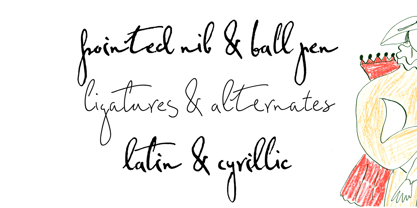 pointed nib & ball pen
ligatures & alternates
latin & cyrillic